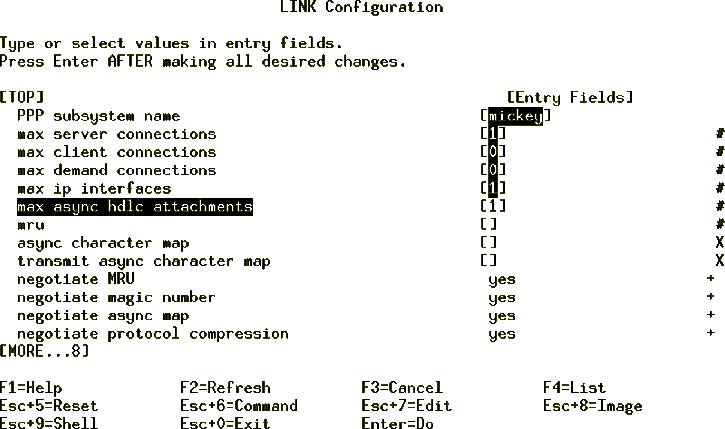 LINK Configuration
Type or select values in entry fields.
Press Enter AFTER making all desired changes.
[TOP] [Entry Fields]
PPP subsystem name [mickey]
max server connections [1] #
max client connections [0] #
max demand connections [0] #
max ip interfaces [1] #
max async hdlc attachments [1] #
mru [] #
async character map [] X
transmit async character map [] X
negotiate MRU yes +
negotiate magic number yes +
negotiate async map yes +
negotiate protocol compression yes +
[MORE...8]
F1=Help F2=Refresh F3=Cancel F4=List
Esc+5=Reset Esc+6=Command Esc+7=Edit Esc+8=Image
Esc+9=Shell Esc+0=Exit Enter=Do